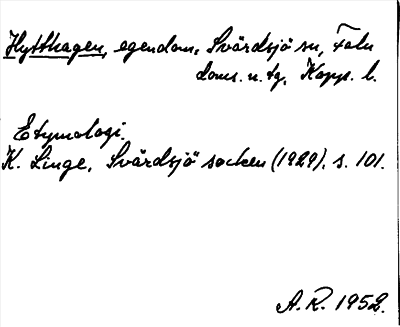 Hytthagen, egendom, Svärdsjö sn, Falu
doms. u. tg, Kopp. l.
Etymologi.
K. Linge, Svärdsjö socken (1929), s. 101.
A. R. 1952.